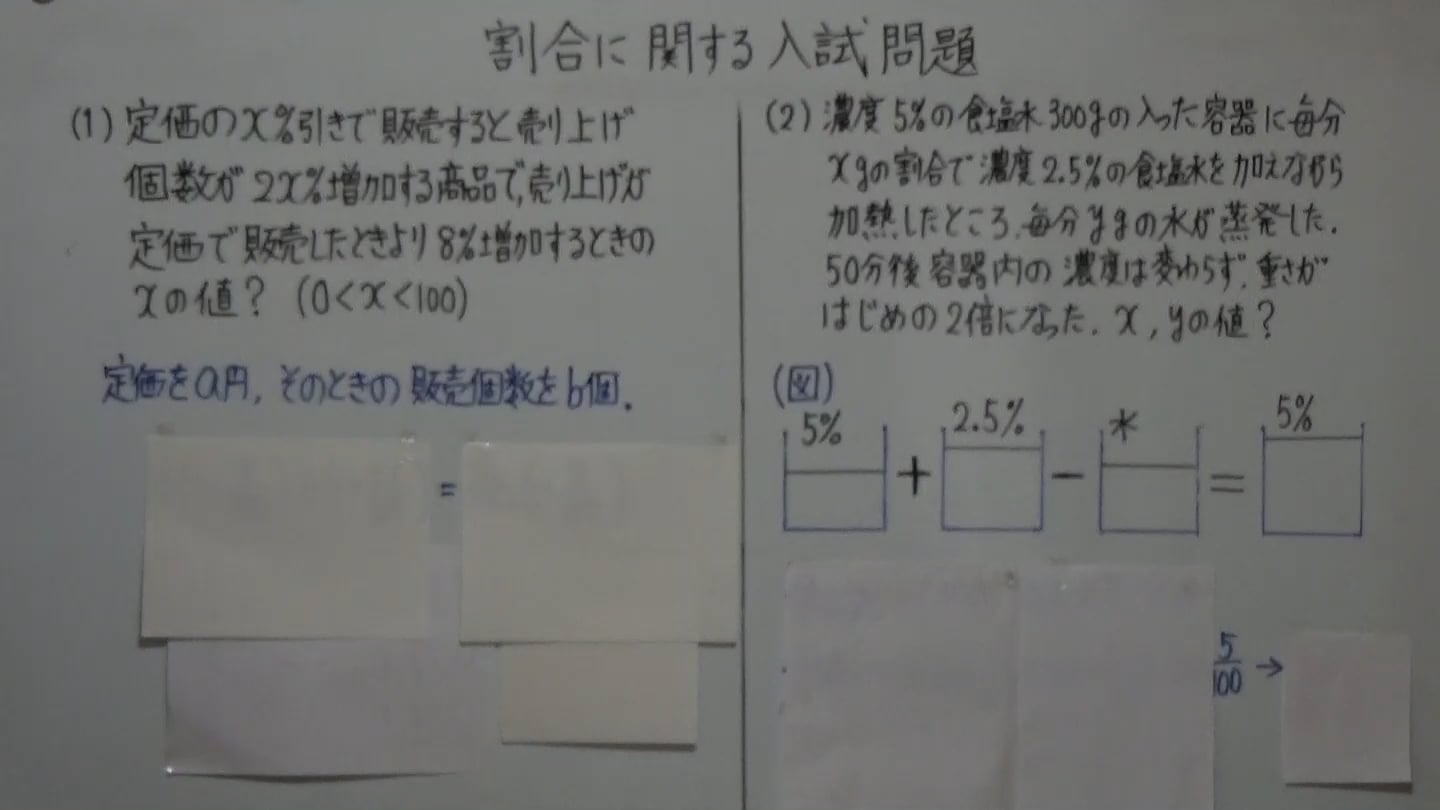 割合に関する入試問題
(1) 定価のx%引きで販売すると売り上げ
個数が2x%増加する商品で,売り上げが
定価で販売したときより8%増加するときの
xの値? (0<x<100)
定価をa円, そのときの販売個数をb個.
=
(2) 濃度5%の食塩水300gの入った容器に毎分
xgの割合で濃度2.5%の食塩水を加えながら
加熱したところ,毎分ygの水が蒸発した.
50分後容器内の濃度は変わらず,重さが
はじめの2倍になった. x,yの値?
(図)
5% 2.5% * 5%
+ - =
5/100 →